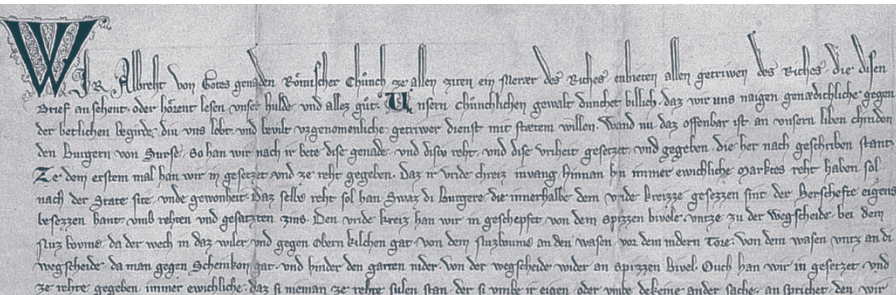 WIR Albreht von Gotes genaden Römischer Chünch ze allen ziten ein merær des Riches enbieten allen getriwen des Riches die disen
Brief an sehent oder hörent lesen unser hulde und allez gůt. Unsern chünchlichen gewalt duncher billich daz wir uns naigen genædichliche gegen
der betlichen begirde diu uns lobt und bevilt uzgenomenliche getriwer dienst mit stætem willen. Wand nu daz offenbar ist an unsern liben
den Burgern von Surse, so han wir nach ir bete dise genade und disiv reht und dise vriheit gesetzet und gegeben die her nach geschriben stant
Ze dem erstem mal han wir in gesetzet und ze reht gegeben. Daz ir vride chreiz immer ewichliche Marktes reht haben sol
nach der State site unde gewonheit. Daz selbe reht sol han Swaz di Burgere die innerhalbe dem vride kreizze gesezzen sint der Herschefte eigens
besezzen hant umb rehten und gesatzten zins. Den vride kreiz han wir in geschepfet von dem spizzen bivele untze zu der Wegscheide bei dem
Nuz boume da der wech in daz wiler und gegen obern kilchen gat von dem Nuzboume an den wasen vor dem nidern Tore. Von dem wasen untz an di
wegscheide da man gegen Schenkon gat und hinder den garten nider von der wegscheide wider an spizzen Bivel. Ouch han wir in gesetzet und
ze rehte gegeben immer ewichliche daz si nieman ze rehte sulen stan der si umbe ir eigen oder umbe dekeine ander sache an sprichet den wir